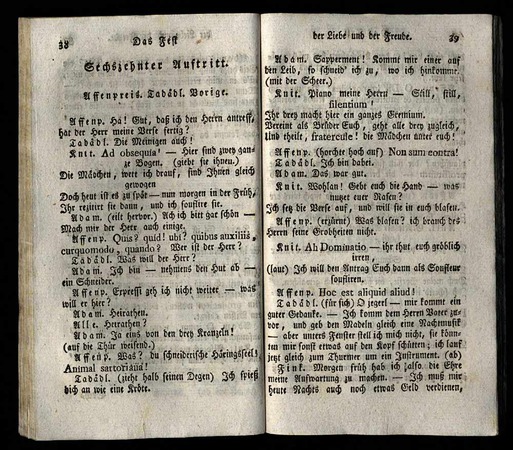 38 Das Fest
Sechszehnter Auftritt.
Affenpreis. Tadädl. Vorige.
Affenp. Ha! Gut, daß ich den Herrn antreff,
hat der Herr meine Verse fertig?
Tadädl. Die Meinigen auch!
Knit. Ad obsequia! — Hier sind zwey gan-
ze Bogen. (giebt sie ihnen.)
Die Mädchen, wett ich drauf, sind Ihnen gleich
gewogen
Doch heut ist es zu spät — nun morgen in der Früh,
Ihr rezitirt sie dann, und ich souflire sie.
Adam. (eilt hervor.) Ach ich bitt gar schön —
Mach mir der Herr auch einige.
Affenp. Quis? quid? ubi? quibus auxiliis,
curquomodo, quando? Wer ist der Herr?
Tadädl. Was will der Herr?
Adam. Ich bin — nehmens den Hut ab —
ein Schneider.
Affenp. Expressi geh ich nicht weiter — was
will er hier?
Adam. Heirathen.
Alle. Heirathen?
Adam. Ja eins von den drey Kranzeln!
(auf die Thür weisend.)
Affenp. Was? du schneiderische Häringsseel!
Animal sartorianā!
Tadädl. (zieht halb seinen Degen) Ich spieß
dich an wie eine Kröte.
der Liebe und der Freude. 39
Adam. Sapperment! Kommt mir einer auf
den Leib, so schneid' ich zu, wo ich hinkomme.
(mit der Scheer.)
Knit. Piano meine Herrn — Still, still,
silentium!
Ihr drey macht hier ein ganzes Gremium.
Vereint als Brüder Euch, geht alle drey zugleich,
Und theilt, fratercule! die Mädchen unter euch!
Affenp. (horchte hoch auf) Non sum contra!
Tadädl. Ich bin dabei.
Adam. Das war gut.
Knit. Wohlan! Gebt euch die Hand — was
nutzet euer Rasen?
Ich setz die Verse auf, und will sie in euch blasen.
Affenp. (erzürnt) Was blasen? ich brauch des
Herrn seine Grobheiten nicht.
Knit. Ah Dominatio — ihr thut euch gröblich
irren,
(laut) Ich will den Antrag Euch dann als Soufleur
soufliren.
Affenp. Hoc est aliquid aliud!
Tadädl. (für sich) O jegerl — mir kommt ein
guter Gedanke. — Ich komm dem Herrn Vater zu-
vor, und geb den Madeln gleich eine Nachtmusik
— aber unters Fenster stell ich mich nicht, sie könn-
ten mir sonst etwas auf den Kopf schütten; ich lauf
jetzt gleich zum Thurmer um ein Instrument. (ab)
Fink. Morgen früh hab ich also die Ehre
meine Aufwartung zu machen. — Ich muß mir
heute Nachts auch noch etwas Geld verdienen,